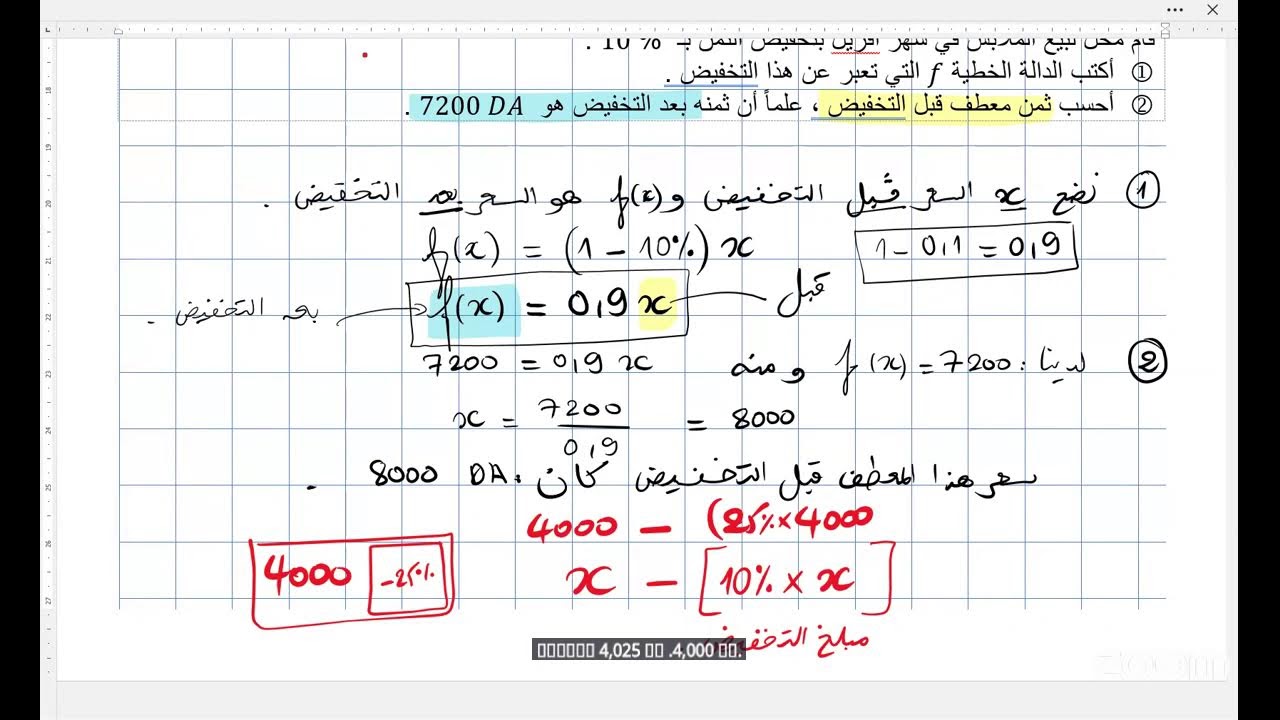 قام محل لبيع الملابس في شهر أفريل بتخفيض الثمن بـ 10 % .
① أكتب الدالة الخطية f التي تعبر عن هذا التخفيض .
② أحسب ثمن معطف قبل التخفيض ، علماً أن ثمنه بعد التخفيض هو 7200 DA .
① نضع x السعر قبل التخفيض و f(x) هو السعر بعد التخفيض .
f(x) = (1 - 10%) x
1 - 0,1 = 0,9
f(x) = 0,9 x
قبل
بعد التخفيض .
② لدينا : f(x) = 7200 ومنه
7200 = 0,9 x
x = 7200 / 0,9 = 8000
سعر هذا المعطف قبل التخفيض كان 8000 DA .
4000 - (25% × 4000
4000 -25%
x - [10% × x]
مبلغ التخفيض
4,025 .4,000